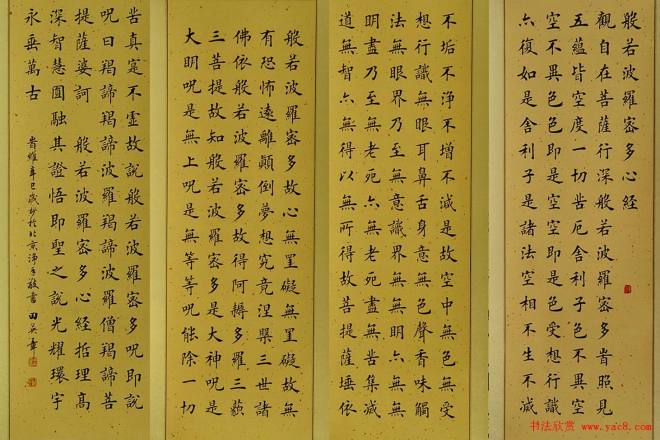 般若波羅密多心經
觀自在菩薩行深般若波羅密多旹照見
五蘊皆空度一切苦厄舍利子色不異空
空不異色色即是空空即是色受想行識
亦復如是舍利子是諸法空相不生不滅
不垢不淨不增不減是故空中無色無受
想行識無眼耳鼻舌身意無色聲香味觸
法無眼界乃至無意識界無無明亦無無
明盡乃至無老死亦無老死盡無苦集滅
道無智亦無得以無所得故菩提薩埵依
般若波羅密多故心無罣礙無罣礙故無
有恐怖遠離顛倒夢想究竟涅槃三世諸
佛依般若波羅密多故得阿耨多羅三藐
三菩提故知般若波羅密多是大神呪是
大明呪是無上呪是無等等呪能除一切
苦真寔不虛故說般若波羅密多呪即說
呪曰揭諦揭諦波羅揭諦波羅僧揭諦菩
提薩婆訶 般若波羅密多心經哲理高
深智慧圓融其證悟即聖之說光耀環宇
永垂萬古
旹維辛巳歲抄於北京 敬書 田英章
书法欣赏 www.yac8.com